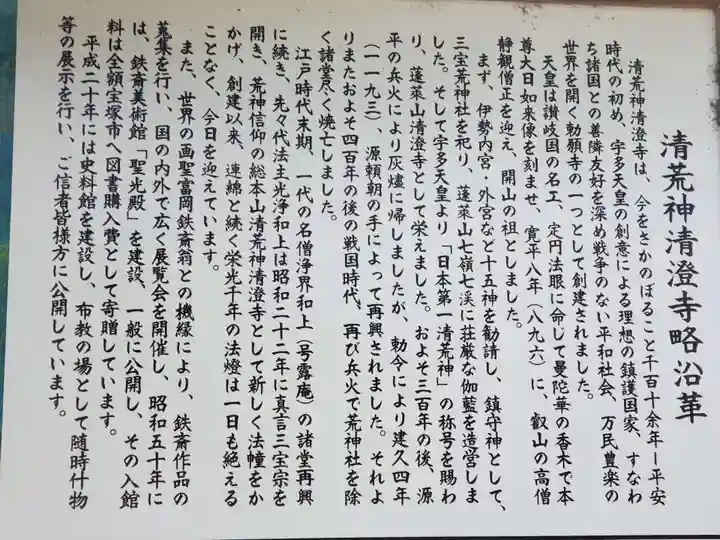 清荒神清澄寺略沿革
清荒神清澄寺は、今をさかのぼること千百十余年―平安
時代の初め、宇多天皇の創意による理想の鎮護国家、すなわ
ち諸国との善隣友好を深め戦争のない平和社会、万民豊楽の
世界を開く勅願寺の一つとして創建されました。
天皇は讃岐国の名工、定円法眼に命して曼陀華の香木で本
尊大日如来像を刻ませ、寛平八年（八九六）に、叡山の高僧
静観僧正を迎え、開山の祖としました。
まず、伊勢内宮・外宮など十五神を勧請し、鎮守神として、
三宝荒神社を祀り、蓬萊山七嶺七渓に荘厳な伽藍を造営しま
した。そして宇多天皇より「日本第一清荒神」の称号を賜わ
り、蓬萊山清澄寺として栄えました。およそ三百年の後、源
平の兵火により灰燼に帰しましたが、勅令により建久四年
（一一九三）、源頼朝の手によって再興されました。それよ
りまたおよそ四百年の後の戦国時代、再び兵火で荒神社を除
く諸堂尽く焼亡しました。
江戸時代末期、一代の名僧浄界和上（号露庵）の諸堂再興
に続き、先々代法主光浄和上は昭和二十二年に真言三宝宗を
開き、荒神信仰の総本山清荒神清澄寺として新しく法幢をか
かげ、創建以来、連綿と続く栄光千年の法燈は一日も絶える
ことなく、今日を迎えています。
また、世界の画聖富岡鉄斎翁との機縁により、鉄斎作品の
蒐集を行い、国の内外で広く展覧会を開催し、昭和五十年に
は、鉄斎美術館「聖光殿」を建設、一般に公開し、その入館
料は全額宝塚市へ図書購入費として寄贈しています。
平成二十年には史料館を建設し、布教の場として随時什物
等の展示を行い、ご信者皆様方に公開しています。